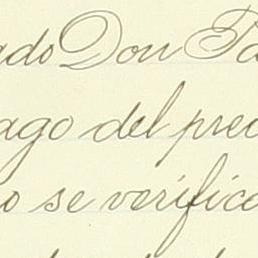 ado Don Pa
ago del prec
o se verifica